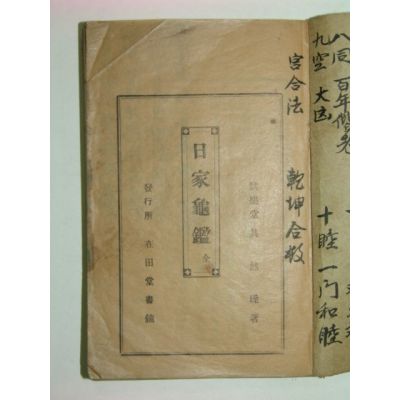 八同 百年偕老
九空 大凶
十睦 一門和睦
宮合法 乾坤合数
著
日家龜鑑 全
發行所 在田堂書鋪